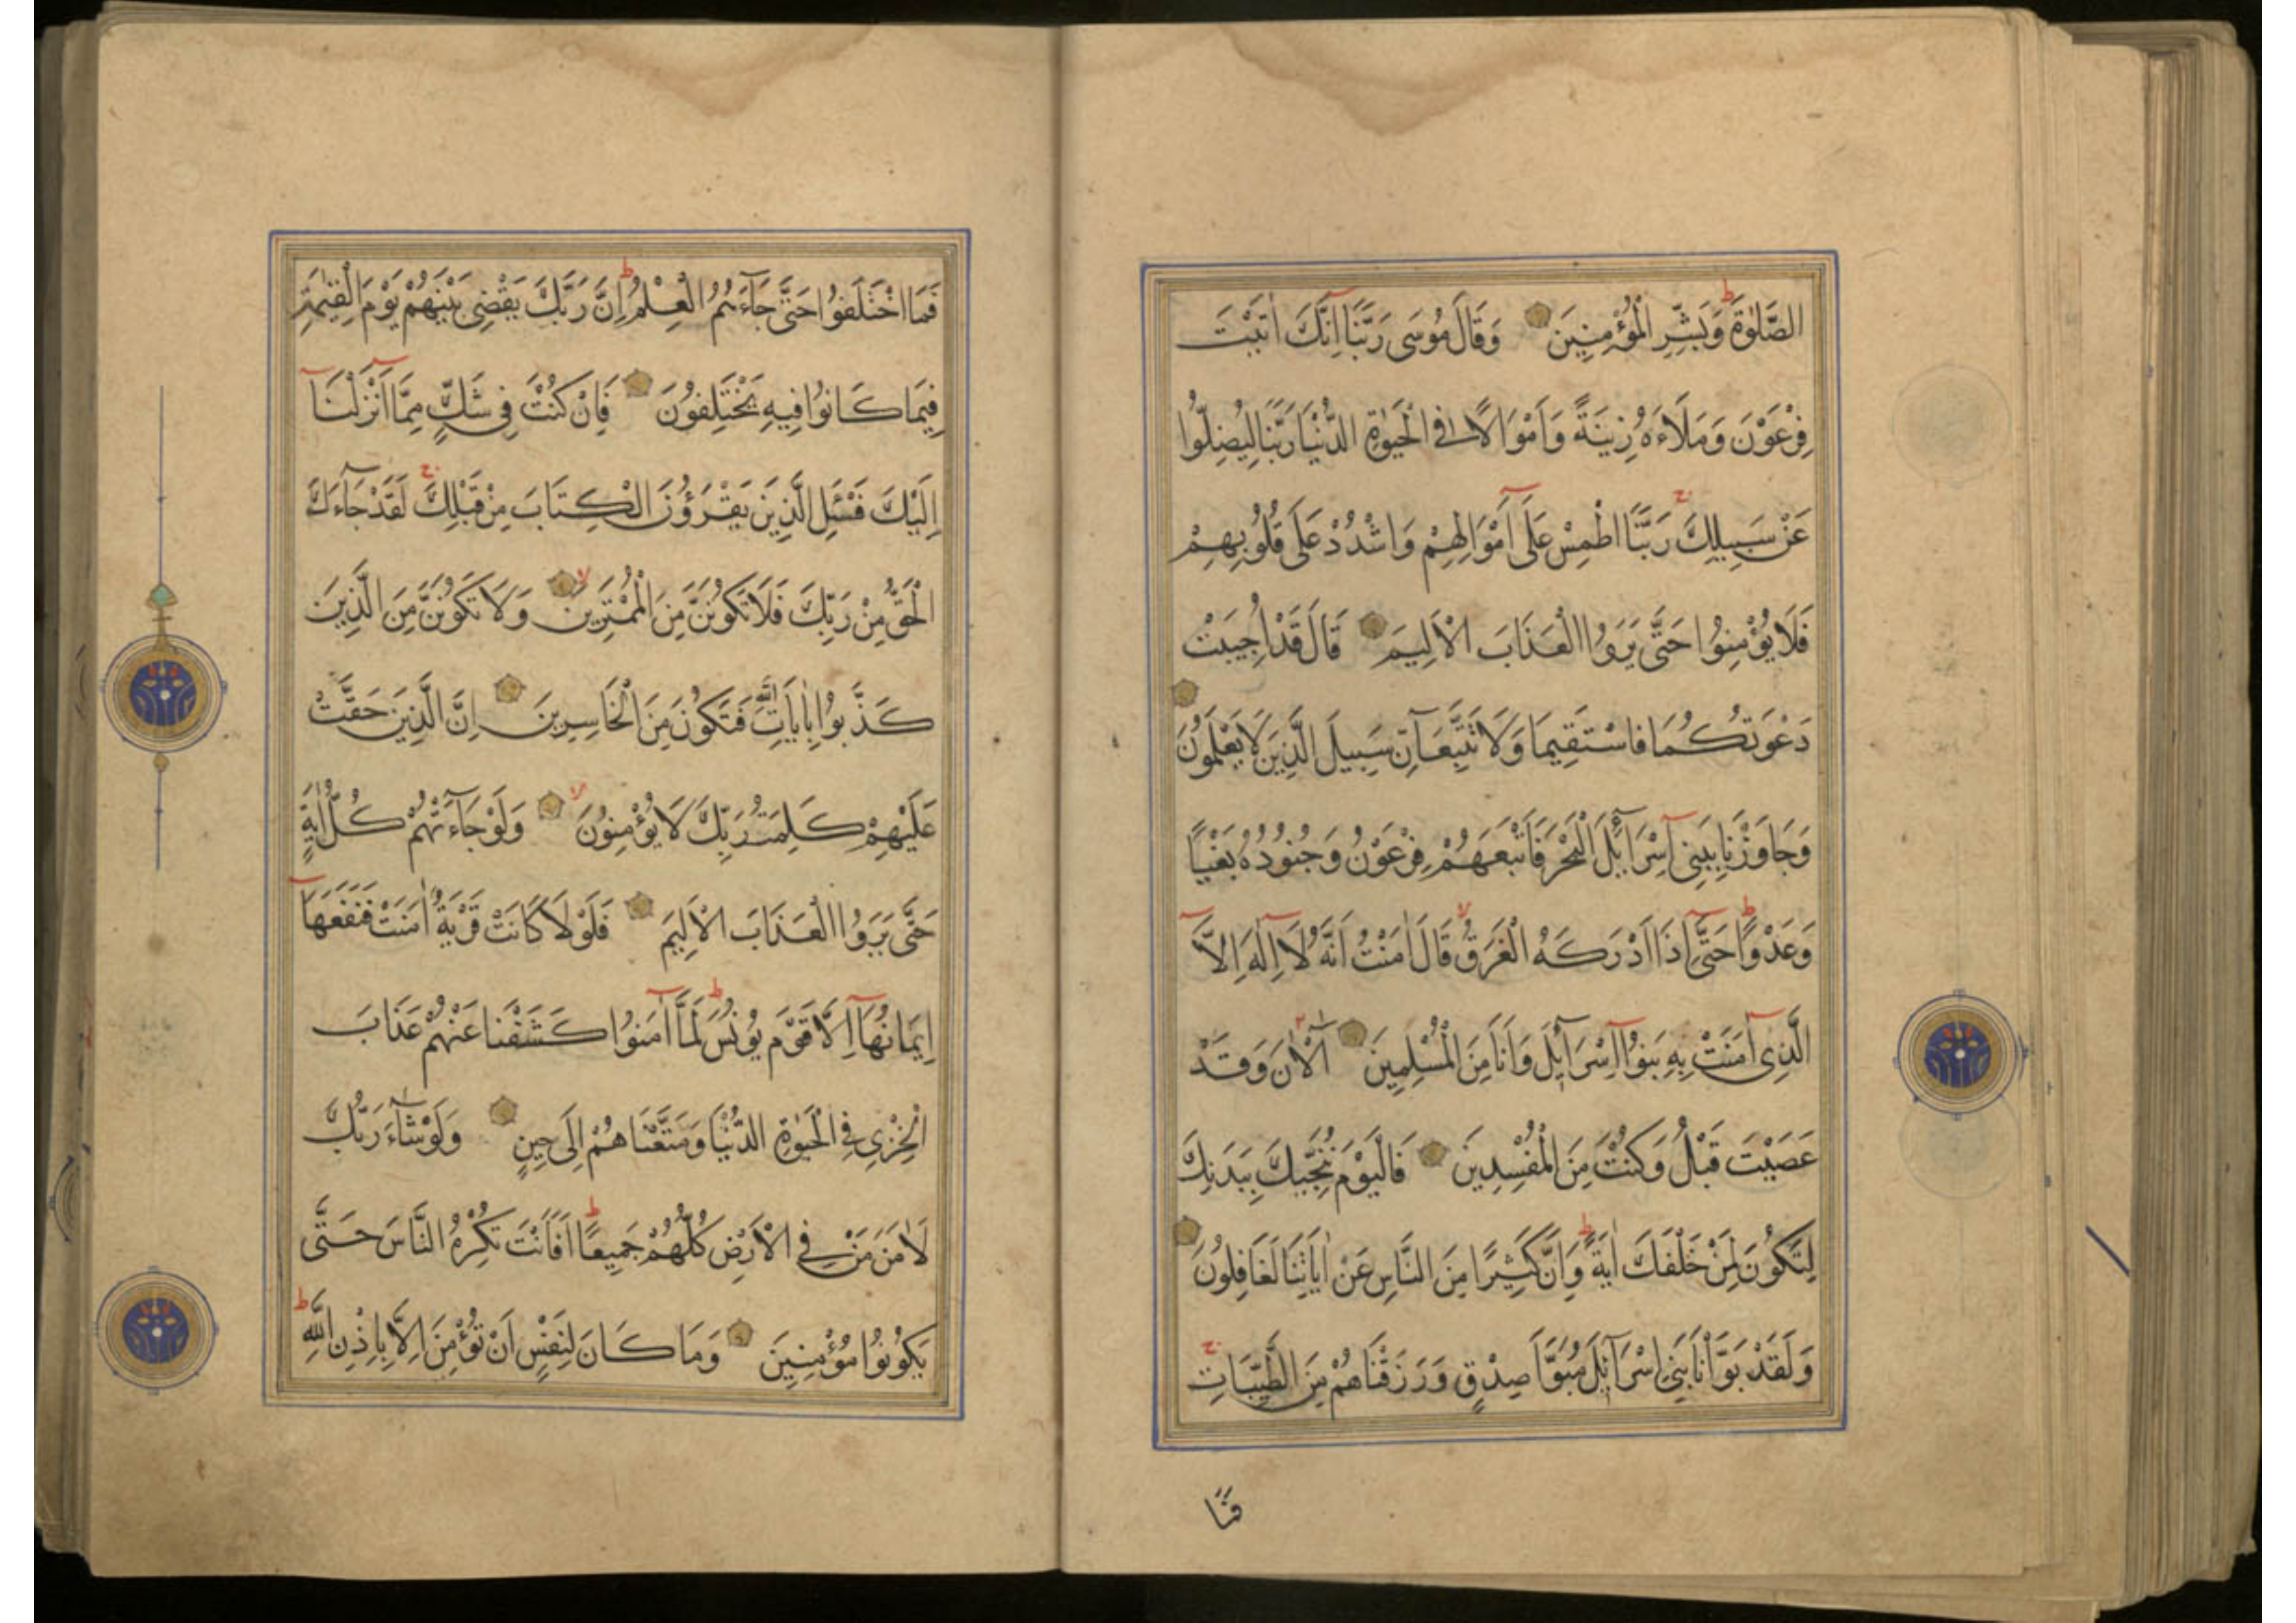 الصَّلٰوةَ وَبَشِّرِ الْمُؤْمِنِينَ وَقَالَ مُوسَى رَبَّنَا اِنَّكَ اٰتَيْتَ
فِرْعَوْنَ وَمَلَاَءَهُ زِينَةً وَاَمْوَالًا فِي الْحَيٰوةِ الدُّنْيَا رَبَّنَا لِيُضِلُّوا
عَنْ سَبِيلِكَ رَبَّنَا اطْمِسْ عَلَى اَمْوَالِهِمْ وَاشْدُدْ عَلَى قُلُوبِهِمْ
فَلَا يُؤْمِنُوا حَتَّى يَرَوُا الْعَذَابَ الْاَلِيمَ قَالَ قَدْ اُجِيبَتْ
دَعْوَتُكُمَا فَاسْتَقِيمَا وَلَا تَتَّبِعَآنِّ سَبِيلَ الَّذِينَ لَا يَعْلَمُونَ
وَجَاوَزْنَا بِبَنِي اِسْرَآئِلَ الْبَحْرَ فَاَتْبَعَهُمْ فِرْعَوْنُ وَجُنُودُهُ بَغْيًا
وَعَدْوًا حَتَّى اِذَا اَدْرَكَهُ الْغَرَقُ قَالَ اٰمَنْتُ اَنَّهُ لَا اِلٰهَ اِلَّا
الَّذِي اٰمَنَتْ بِهِ بَنُوا اِسْرَآئِلَ وَاَنَا مِنَ الْمُسْلِمِينَ آلْاٰنَ وَقَدْ
عَصَيْتَ قَبْلُ وَكُنْتَ مِنَ الْمُفْسِدِينَ فَالْيَوْمَ نُنَجِّيكَ بِبَدَنِكَ
لِتَكُونَ لِمَنْ خَلْفَكَ اٰيَةً وَاِنَّ كَثِيرًا مِنَ النَّاسِ عَنْ اٰيَاتِنَا لَغَافِلُونَ
وَلَقَدْ بَوَّاْنَا بَنِي اِسْرَآئِلَ مُبَوَّاَ صِدْقٍ وَرَزَقْنَاهُمْ مِنَ الطَّيِّبَاتِ
فَمَا
فَمَا اخْتَلَفُوا حَتَّى جَآءَهُمُ الْعِلْمُ اِنَّ رَبَّكَ يَقْضِي بَيْنَهُمْ يَوْمَ الْقِيٰمَةِ
فِيمَا كَانُوا فِيهِ يَخْتَلِفُونَ فَاِنْ كُنْتَ فِي شَكٍّ مِمَّا اَنْزَلْنَا
اِلَيْكَ فَسْئَلِ الَّذِينَ يَقْرَؤُنَ الْكِتَابَ مِنْ قَبْلِكَ لَقَدْ جَآءَكَ
الْحَقُّ مِنْ رَبِّكَ فَلَا تَكُونَنَّ مِنَ الْمُمْتَرِينَ وَلَا تَكُونَنَّ مِنَ الَّذِينَ
كَذَّبُوا بِاٰيَاتِ اللّٰهِ فَتَكُونَ مِنَ الْخَاسِرِينَ اِنَّ الَّذِينَ حَقَّتْ
عَلَيْهِمْ كَلِمَتُ رَبِّكَ لَا يُؤْمِنُونَ وَلَوْ جَآءَتْهُمْ كُلُّ اٰيَةٍ
حَتَّى يَرَوُا الْعَذَابَ الْاَلِيمَ فَلَوْلَا كَانَتْ قَرْيَةٌ اٰمَنَتْ فَنَفَعَهَا
اِيمَانُهَا اِلَّا قَوْمَ يُونُسَ لَمَّا اٰمَنُوا كَشَفْنَا عَنْهُمْ عَذَابَ
الْخِزْيِ فِي الْحَيٰوةِ الدُّنْيَا وَمَتَّعْنَاهُمْ اِلَى حِينٍ وَلَوْ شَآءَ رَبُّكَ
لَاٰمَنَ مَنْ فِي الْاَرْضِ كُلُّهُمْ جَمِيعًا اَفَاَنْتَ تُكْرِهُ النَّاسَ حَتَّى
يَكُونُوا مُؤْمِنِينَ وَمَا كَانَ لِنَفْسٍ اَنْ تُؤْمِنَ اِلَّا بِاِذْنِ اللّٰهِ